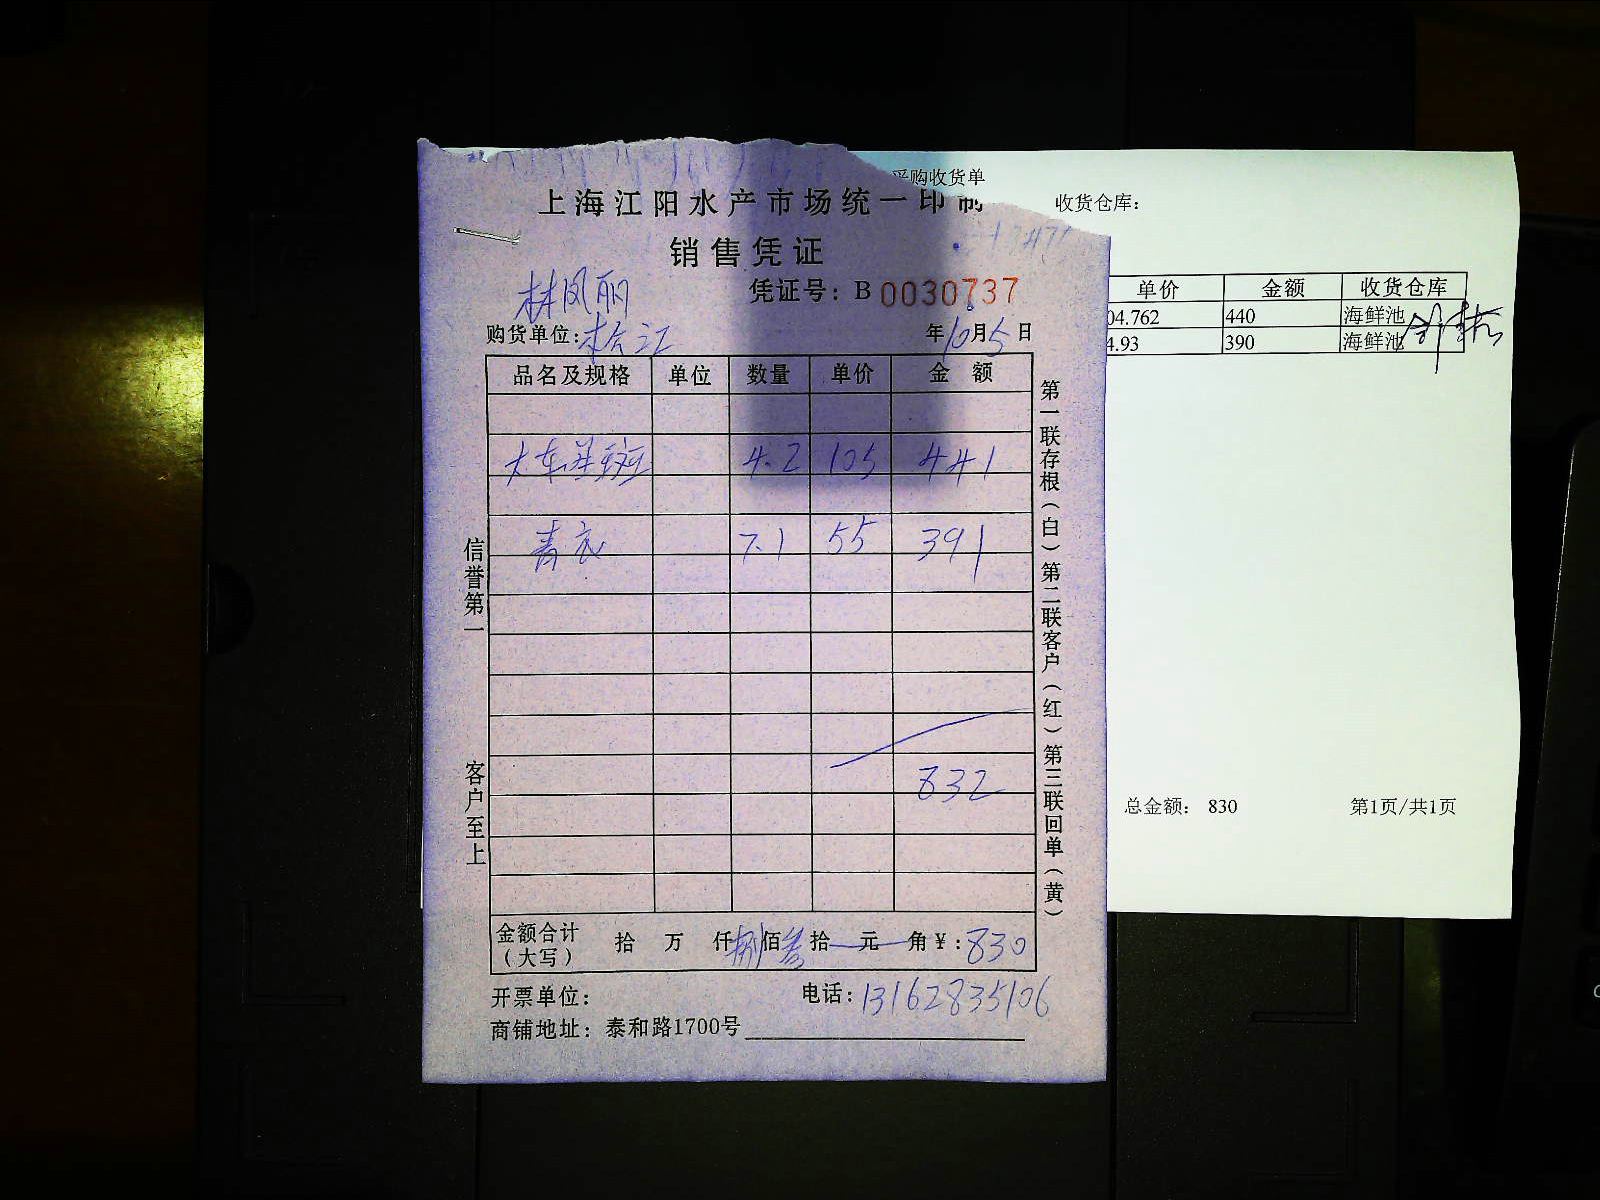 采购收货单
上海江阳水产市场统一印制
收货仓库：
销售凭证
林凤丽
凭证号：B 0030737
购货单位：松江 年10月5日
品名及规格 单位 数量 单价 金额
大东星斑 4.2 105 441
青衣 7.1 55 391
832
金额合计（大写） 拾 万 仟捌佰叁拾 元 角￥：830
开票单位：
电话：13162835106
商铺地址：泰和路1700号
信誉第一
客户至上
第一联存根（白）第二联客户（红）第三联回单（黄）
单价 金额 收货仓库
04.762 440 海鲜池
4.93 390 海鲜池
总金额： 830 第1页/共1页